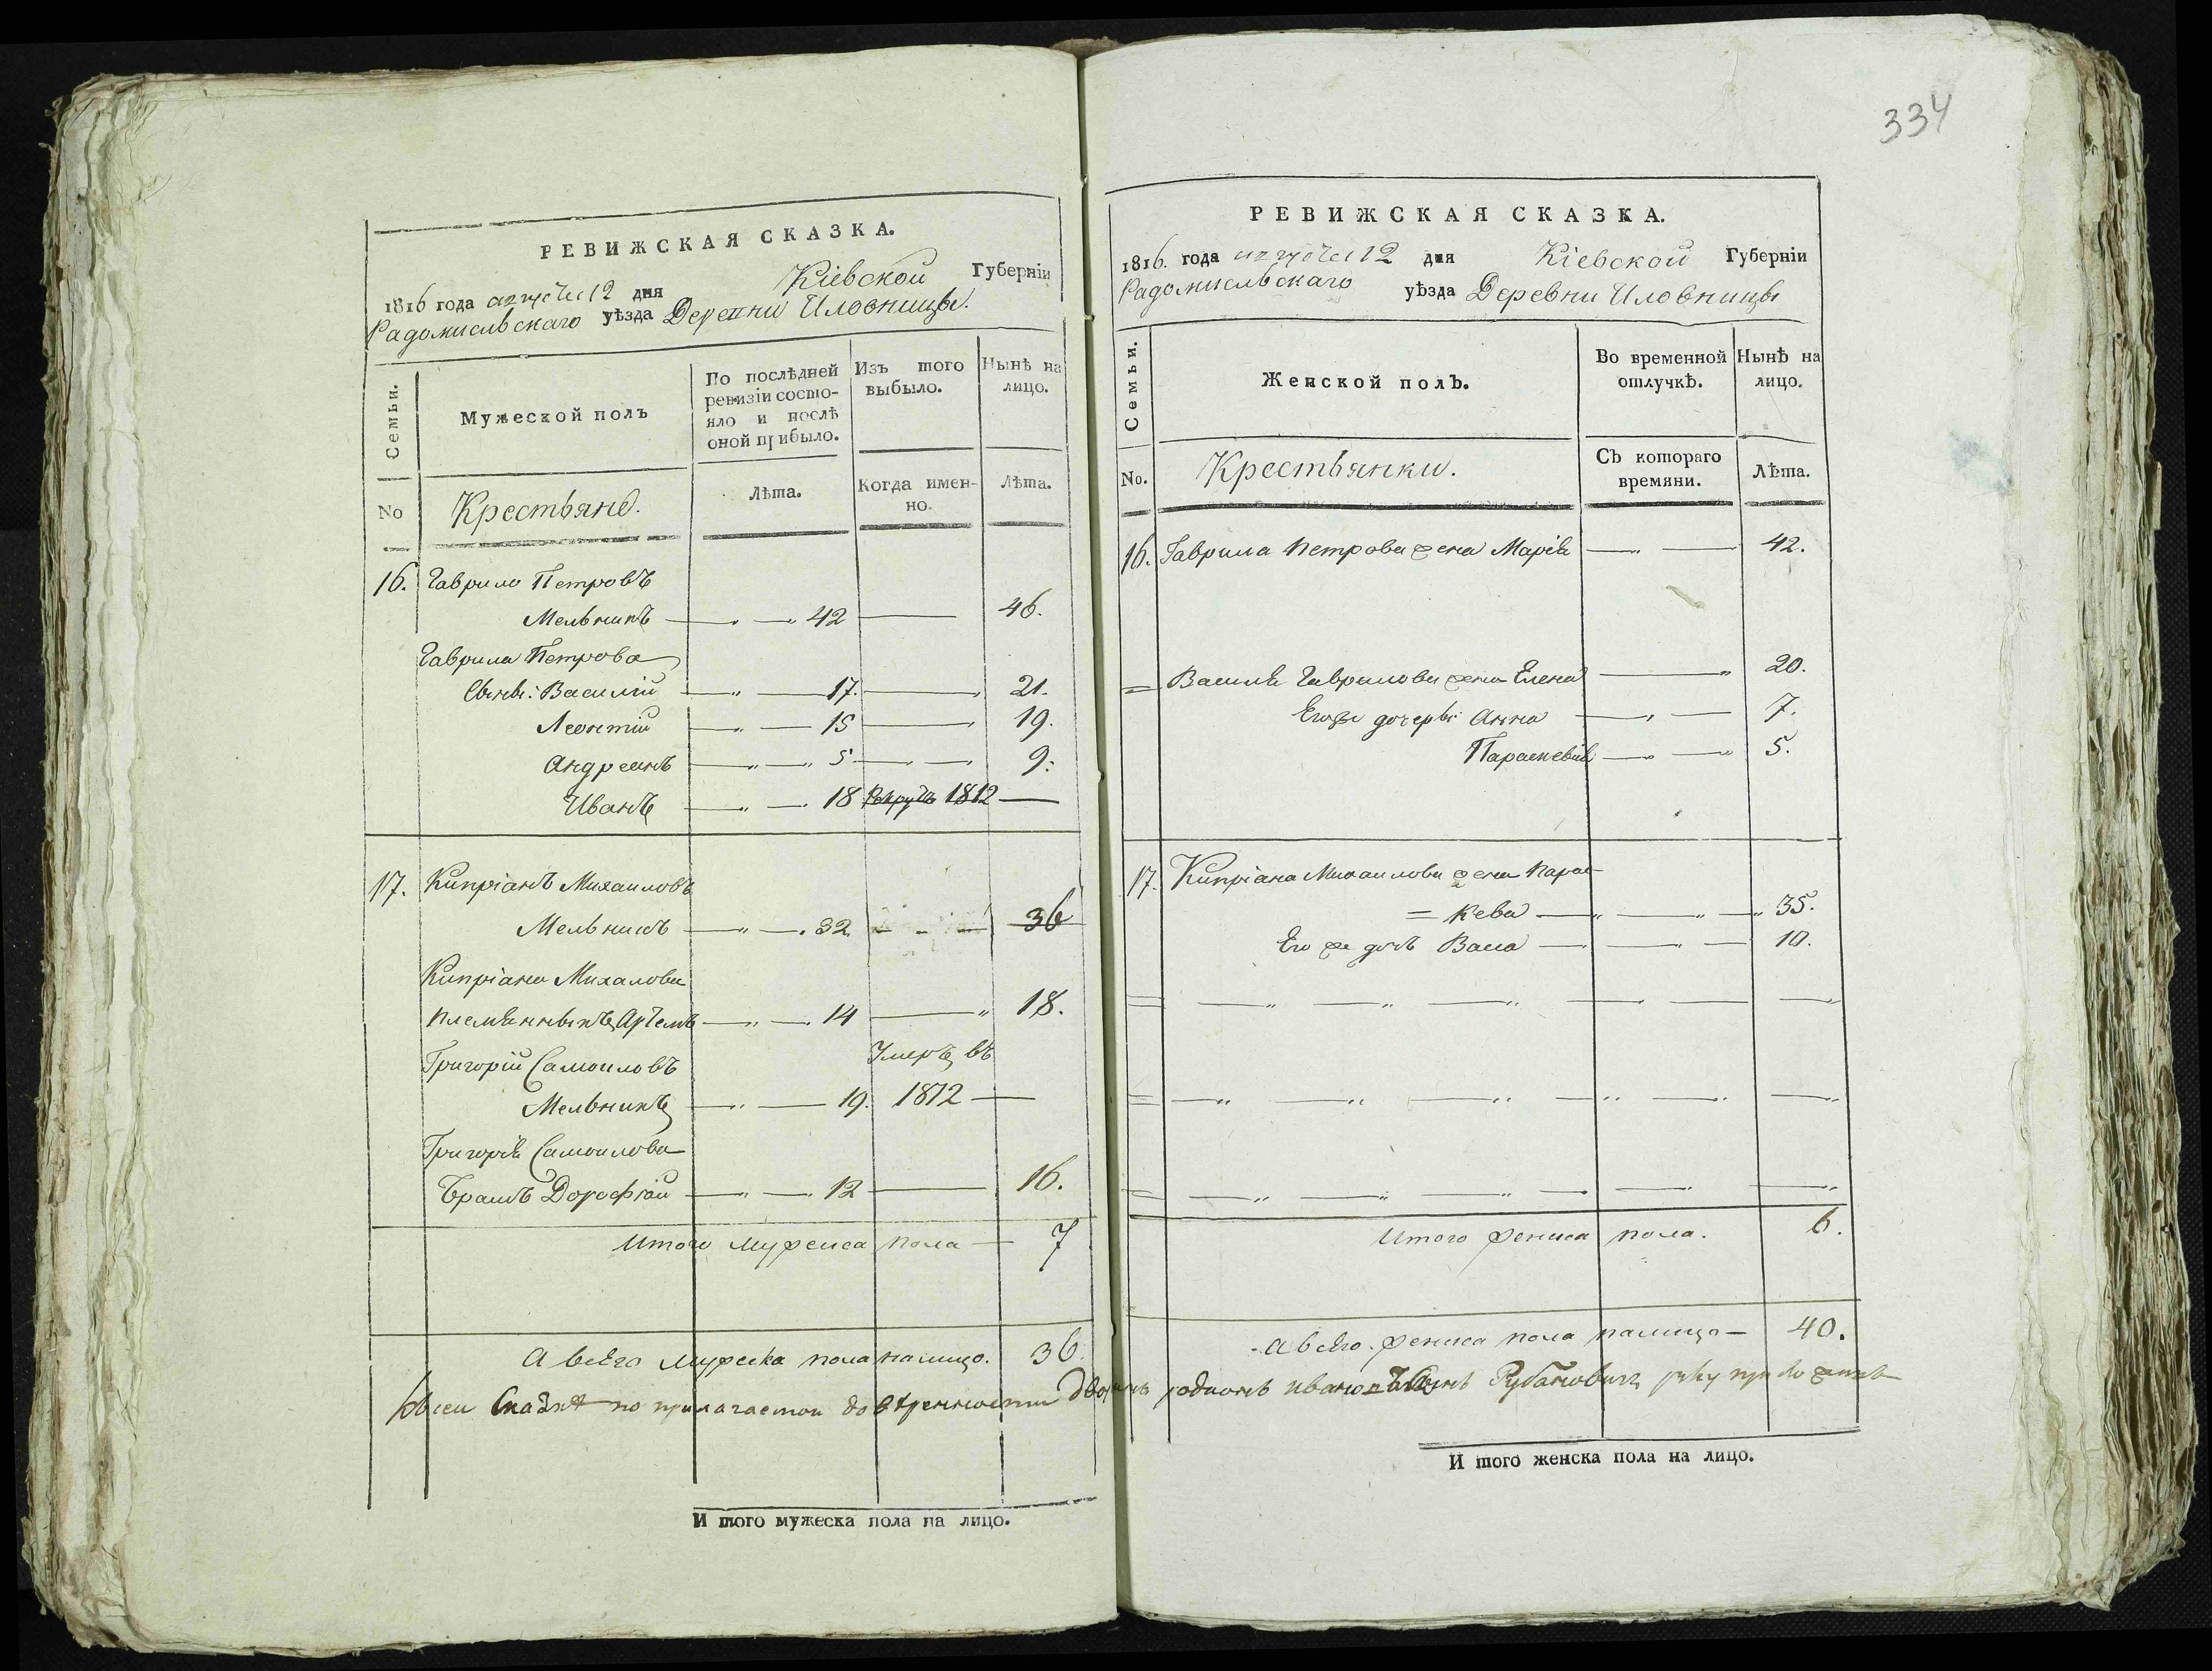 334
РЕВИЖСКАЯ СКАЗКА.
1816 года августа 12 дня Кіевской Губерніи
Радомисльскаго уѣзда Деревни Иловницы.
Семьи.
Мужеской полъ
По послѣдней ревизіи состо-
яло и послѣ оной прибыло.
Изъ того выбыло.
Нынѣ на лицо.
No
Крестьяне.
Лѣта.
Когда имен-
но.
Лѣта.
16. Гаврило Петровъ
Мельникъ 42 46.
Гаврила Петрова
Сыны: Василій 17. 21.
Леонтій 15 19.
Андреянъ 5 9.
Иванъ 18 Рекрутъ 1812
17. Кипріанъ Михаиловъ
Мельникъ 32 36
Кипріана Михалова
племянникъ Артемъ 14 18.
Григорій Самоиловъ Умеръ въ
Мельникъ 19. 1812
Григорія Самоилова
Братъ Дорофій 12 16.
Итого мужеска пола 7
А всего мужеска пола налицо. 36.
РЕВИЖСКАЯ СКАЗКА.
1816. года августа 12 дня Кіевской Губерніи
Радомисльскаго уѣзда Деревни Иловницы
Семьи.
Женской полъ.
Во временной отлучкѣ.
Нынѣ на лицо.
No.
Крестьянки.
Съ котораго времяни.
Лѣта.
16. Гаврила Петрова жена Марія 42.
Василя Гаврилова жена Елена 20.
Егоже дочери Анна 7.
Параскевія 5.
17. Кипріана Михаилова жена Парас-
= кева 35.
Его же дочь Васа 10.
Итого женска пола. 6.
А всего женска пола налицо 40.
Ксеи Сказке по прилагаемои доверенности Дворянъ родионъ ивановъ Сынъ Рубановичъ руку приложилъ
И того мужеска пола на лицо.
И того женска пола на лицо.